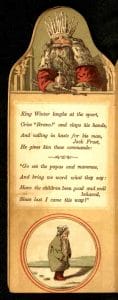 King Winter laughs at the sport,
Cries "Bravo!" and claps his hands,
And calling in haste for his man,
Jack Frost,
He gives him these commands:
"Go see the papas and mammas,
And bring me word what they say:
Have the children been good and well
behaved,
Since last I came this way?"